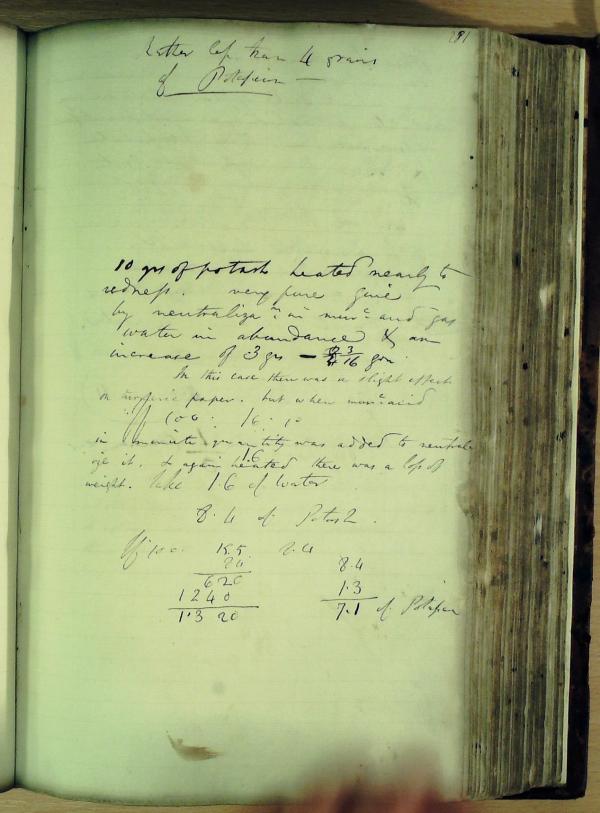 281
rather less than 4 grains
of Potassium —
10 grs of potash heated nearly to
redness. very pure give
by neutraliza n in mur c acid gas
water in abundance & an
increase of 3 grs — 3/16 grn
In this case there was a slight effect
on turmeric paper. but when mur c acid
If 100 : 16 : 10
in minute quantity was added to neutral-
ize it. & again heated there was a loss of
weight. 1.6
Take 1.6 of water
8.4 of Potash.
If 100 15.5 8.4
620 8.4
1240 1.3
1.3 20 7.1 of Potassium